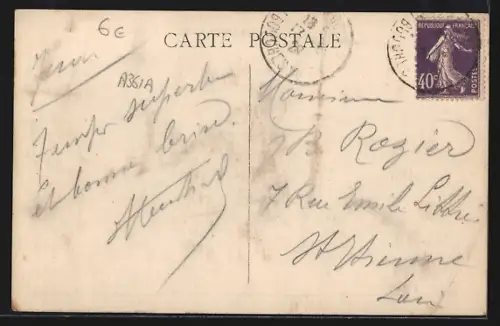 6€
CARTE POSTALE
RÉPUBLIQUE FRANÇAISE
40c
POSTES
A361A
Temps superbe
et bonne brise.
Monsieur
B Rozier
7 Rue Emile Littré
St Etienne
Loire